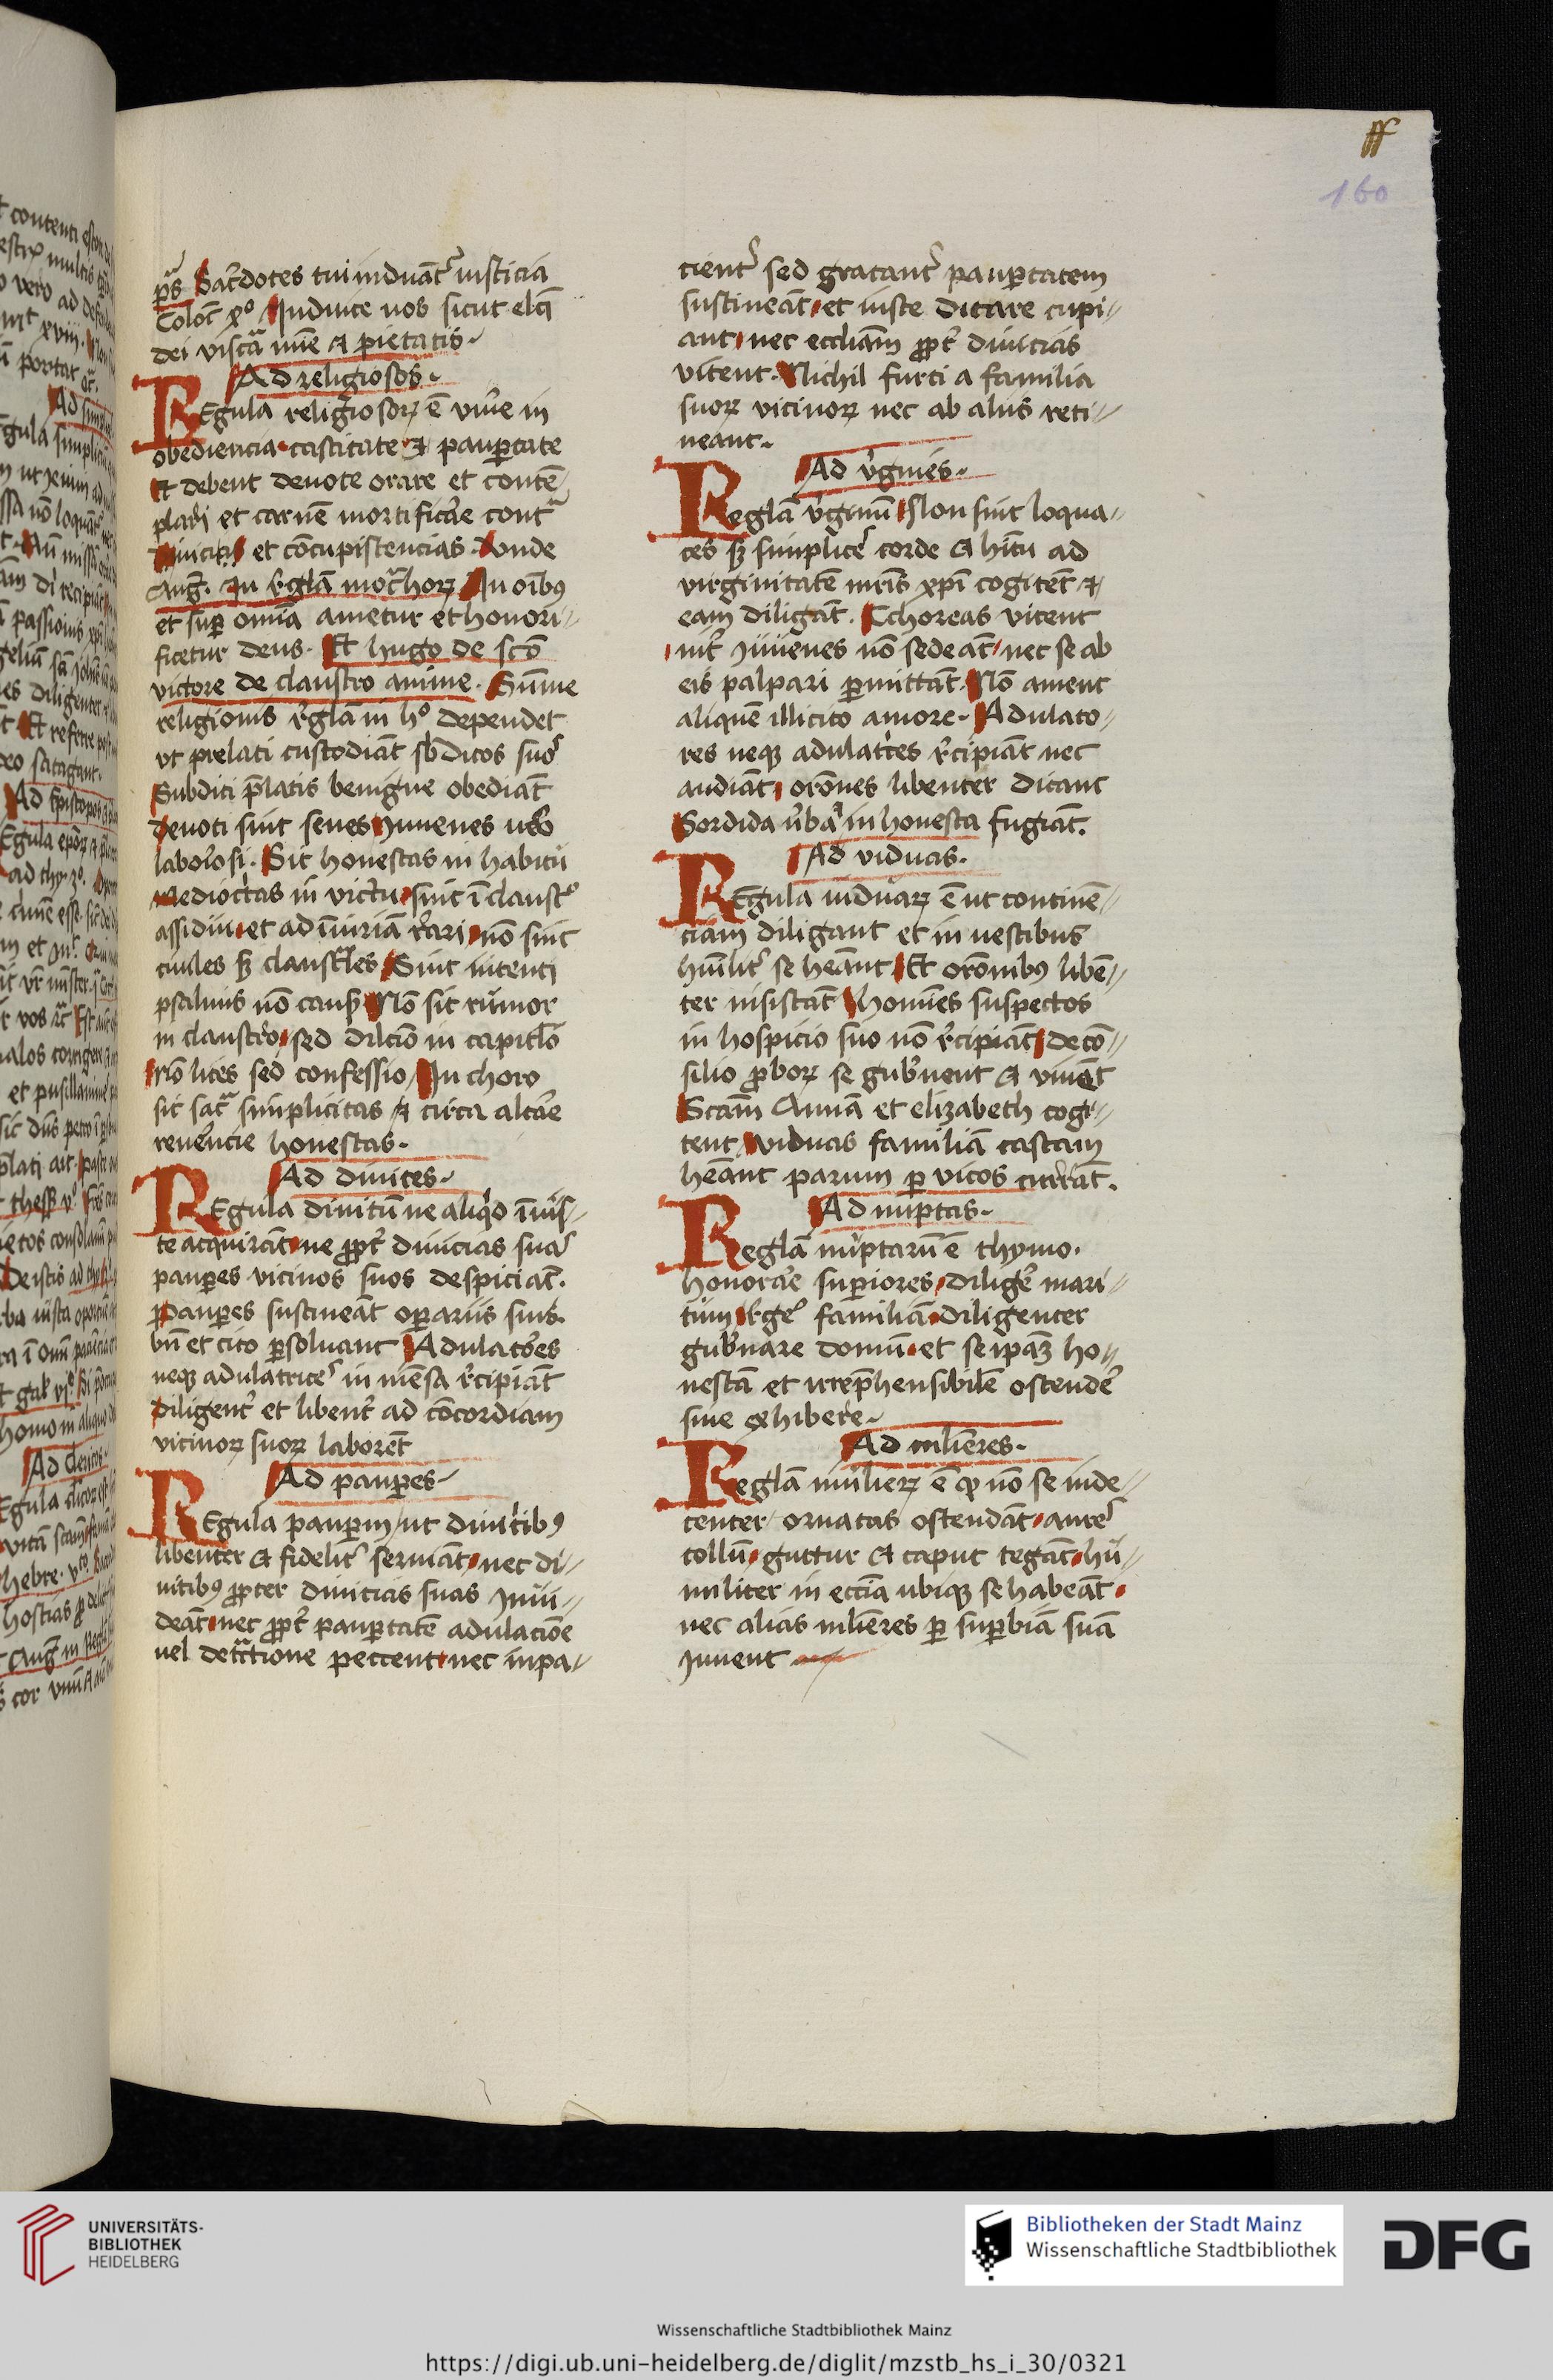 ff
160
pꝰs Sac̄dotes tui induāt᷑ iusticia
Coloc̄ 3º Induite uos sicut elc̄i
dei visc̄a mīe et pietatis
Ad religiosos
REgula religiosoꝝ ē viuē in
obediencia castitate et paup̄tate
Et debent deuote orare et contē
plari et carnē mortificāe cont̄
vicia et cōcupiscencias Unde
Aug. In r̄glā moc̄hoꝝ In oībꝰ
et suꝑ omīa ametur et honori
ficetur deus. Et hugo de sc̄o
victore de claustro anime. Sūme
religionis r̄glā in hº dependet
vt prelati custodiāt sb̄ditos suos
Subditi p̄latis benigne obediāt
deuoti sint senes Juuenes u̅o
labor̄osi. Sit honestas in habitu
Medioc̄tas in victu sint ī claustº
assidui et ad īiuriā r̄ari nō sint
ciuiles sꝫ claust̄les Sint intenti
psalmis nō causis Nō sit rumor
in claustro sed dil̄cio in capitlo
Nō lites sed confessio In choro
sit sac̄ simplicitas et circa altāe
reuēncie honestas.
Ad diuites.
REgula diuitū ne aliq̄d īius
te acquirāt ne ꝓpt̄ diuicias suas
pauꝑes vicinos suos despiciāt.
pauꝑes sustineāt oꝑariis suis.
bn̄ et cito ꝑsoluant Adulatōes
neqꝫ adulatrices in mēsa r̄cipiāt
diligent᷑ et libent᷑ ad cōcordiam
vicinoꝝ suoꝝ laborēt
Ad pauꝑes
REgula pauꝑum ut diuitibꝰ
libenter et fidelit᷑ seruiāt nec di
uitibꝰ ꝓpter diuicias suas Inui
deāt nec ꝓpt̄ pauꝑtatē adulacōe
uel det̄ctione peccent nec inpa
cient᷑ sed gratant᷑ pauꝑtatem
sustineāt et iuste ditare cupi
ant nec eccliam ꝓpt̄ diuicias
vitent. Nichil furti a familia
suoꝝ vicinoꝝ nec ab aliis reti
neant.
Ad v̄gines.
Reglā v̄ginū Non sint loqua
ces sꝫ simplices corde et hītu ad
virginitatē mr̄is xp̄i cogitēt et
eam diligāt. Choreas vitent
int᷑ Juuenes nō sedeāt nec se ab
eis palpari ꝑmittāt Nō ament
aliquē illicito amore. Adulato
res neqꝫ adulatr̄ces r̄cipiāt nec
audiāt or̄ones libenter dicant
Sordida u̅ba in honesta fugiāt.
Ad viduas.
REgula viduaꝝ ē ut continē
ciam diligant et in uestibus
hūilit᷑ se heānt Et or̄onibꝰ libē
ter insistāt homines suspectos
in hospicio suo nō r̄cipiāt de cō
silio ꝓboꝝ se gub̄nent et viuāt
Sc̄am Annā et elizabeth cogi
tent viduas familiā castam
heānt parum ꝑ vicos currāt.
Ad nuptas.
Reglā nuptarū ē thymo.
honorāe suꝑiores diligē mari
tum Rege᷑ familiā diligenter
gub̄nare domū et seipāꝫ ho
nestā et irrep̄hensibilē ostendē
siue exhibere.
Ad mlīeres.
Reglā mulieꝝ ē ꝙ nō se inde
center ornatas ostendāt aures
collū guttur et caput tegāt hū
militer in eccīa ubiqꝫ se habeāt
nec alias mlīeres ꝑ suꝑbiā suā
Juuent
UNIVERSITÄTS-
BIBLIOTHEK
HEIDELBERG
Bibliotheken der Stadt Mainz
Wissenschaftliche Stadtbibliothek
DFG
Wissenschaftliche Stadtbibliothek Mainz
https://digi.ub.uni-heidelberg.de/diglit/mzstb_hs_i_30/0321